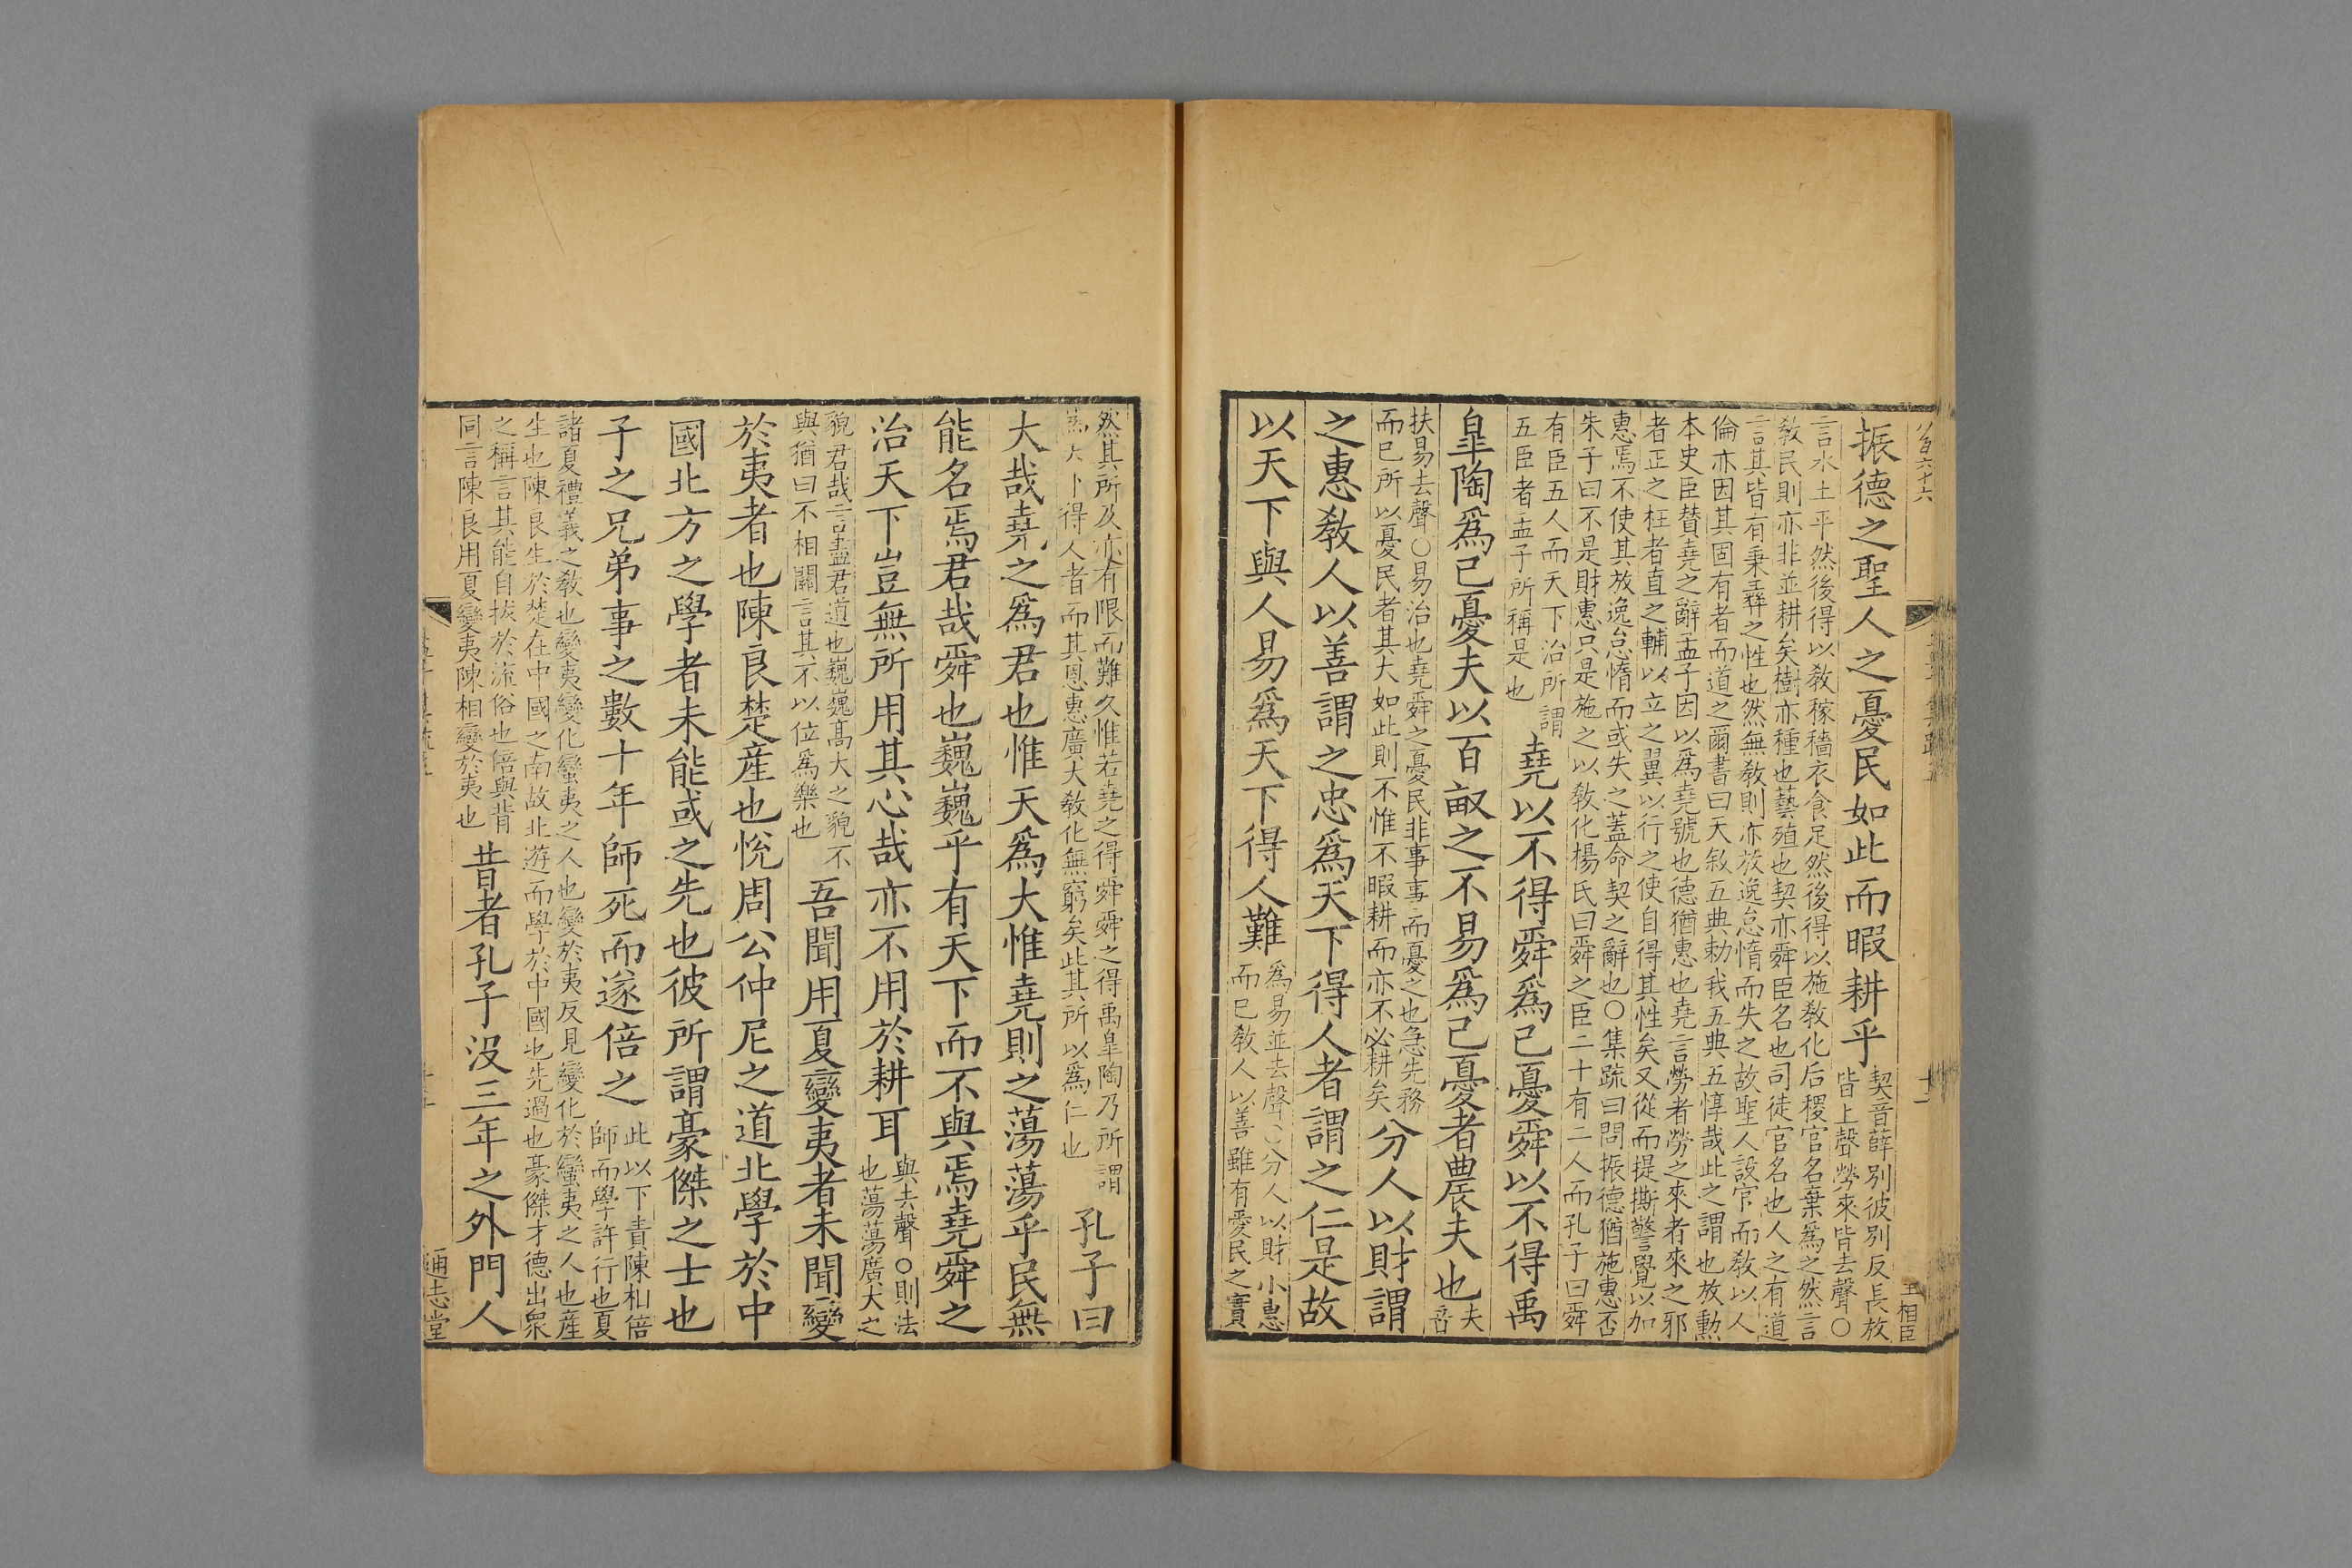 百六十六
王相臣
振德之聖人之憂民如此而暇耕乎
契音薛别彼别反長放
皆上聲勞來皆去聲○
言水土平然後得以敎稼穡衣食足然後得以施敎化后稷官名棄爲之然言
敎民則亦非並耕矣樹亦種也藝殖也契亦舜臣名也司徒官名也人之有道
言其皆有秉彛之性也然無敎則亦放逸怠惰而失之故聖人設官而敎以人
倫亦因其固有者而道之爾書曰天叙五典勅我五典五惇哉此之謂也放勳
本史臣贊堯之辭孟子因以爲堯號也德猶惠也堯言勞者勞之來者來之邪
者正之枉者直之輔以立之翼以行之使自得其性矣又從而提撕警覺以加
惠焉不使其放逸怠惰而或失之蓋命契之辭也○集疏曰問振德猶施惠否
朱子曰不是財惠只是施之以敎化楊氏曰舜之臣二十有二人而孔子曰舜
有臣五人而天下治所謂
五臣者孟子所稱是也
堯以不得舜爲己憂舜以不得禹
皐陶爲己憂夫以百畝之不易爲己憂者農夫也
夫
音
扶易去聲○易治也堯舜之憂民非事事而憂之也急先務
而已所以憂民者其大如此則不惟不暇耕而亦不必耕矣
分人以財謂
之惠敎人以善謂之忠爲天下得人者謂之仁是故
以天下與人易爲天下得人難
爲易並去聲○分人以財小惠
而已敎人以善雖有愛民之實
然其所及亦有限而難久惟若堯之得舜舜之得禹皐陶乃所謂
爲天下得人者而其恩惠廣大敎化無窮矣此其所以爲仁也
孔子曰
大哉堯之爲君也惟天爲大惟堯則之蕩蕩乎民無
能名焉君哉舜也巍巍乎有天下而不與焉堯舜之
治天下豈無所用其心哉亦不用於耕耳
與去聲○則法
也蕩蕩廣大之
貌君哉言盡君道也巍巍高大之貌不
與猶曰不相關言其不以位爲樂也
吾聞用夏變夷者未聞變
於夷者也陳良楚産也悅周公仲尼之道北學於中
國北方之學者未能或之先也彼所謂豪傑之士也
子之兄弟事之數十年師死而遂倍之
此以下責陳相倍
師而學許行也夏
諸夏禮義之敎也變夷變化蠻夷之人也變於夷反見變化於蠻夷之人也産
生也陳良生於楚在中國之南故北遊而學於中國也先過也豪傑才德出衆
之稱言其能自拔於流俗也倍與背
同言陳良用夏變夷陳相變於夷也
昔者孔子没三年之外門人
通志堂